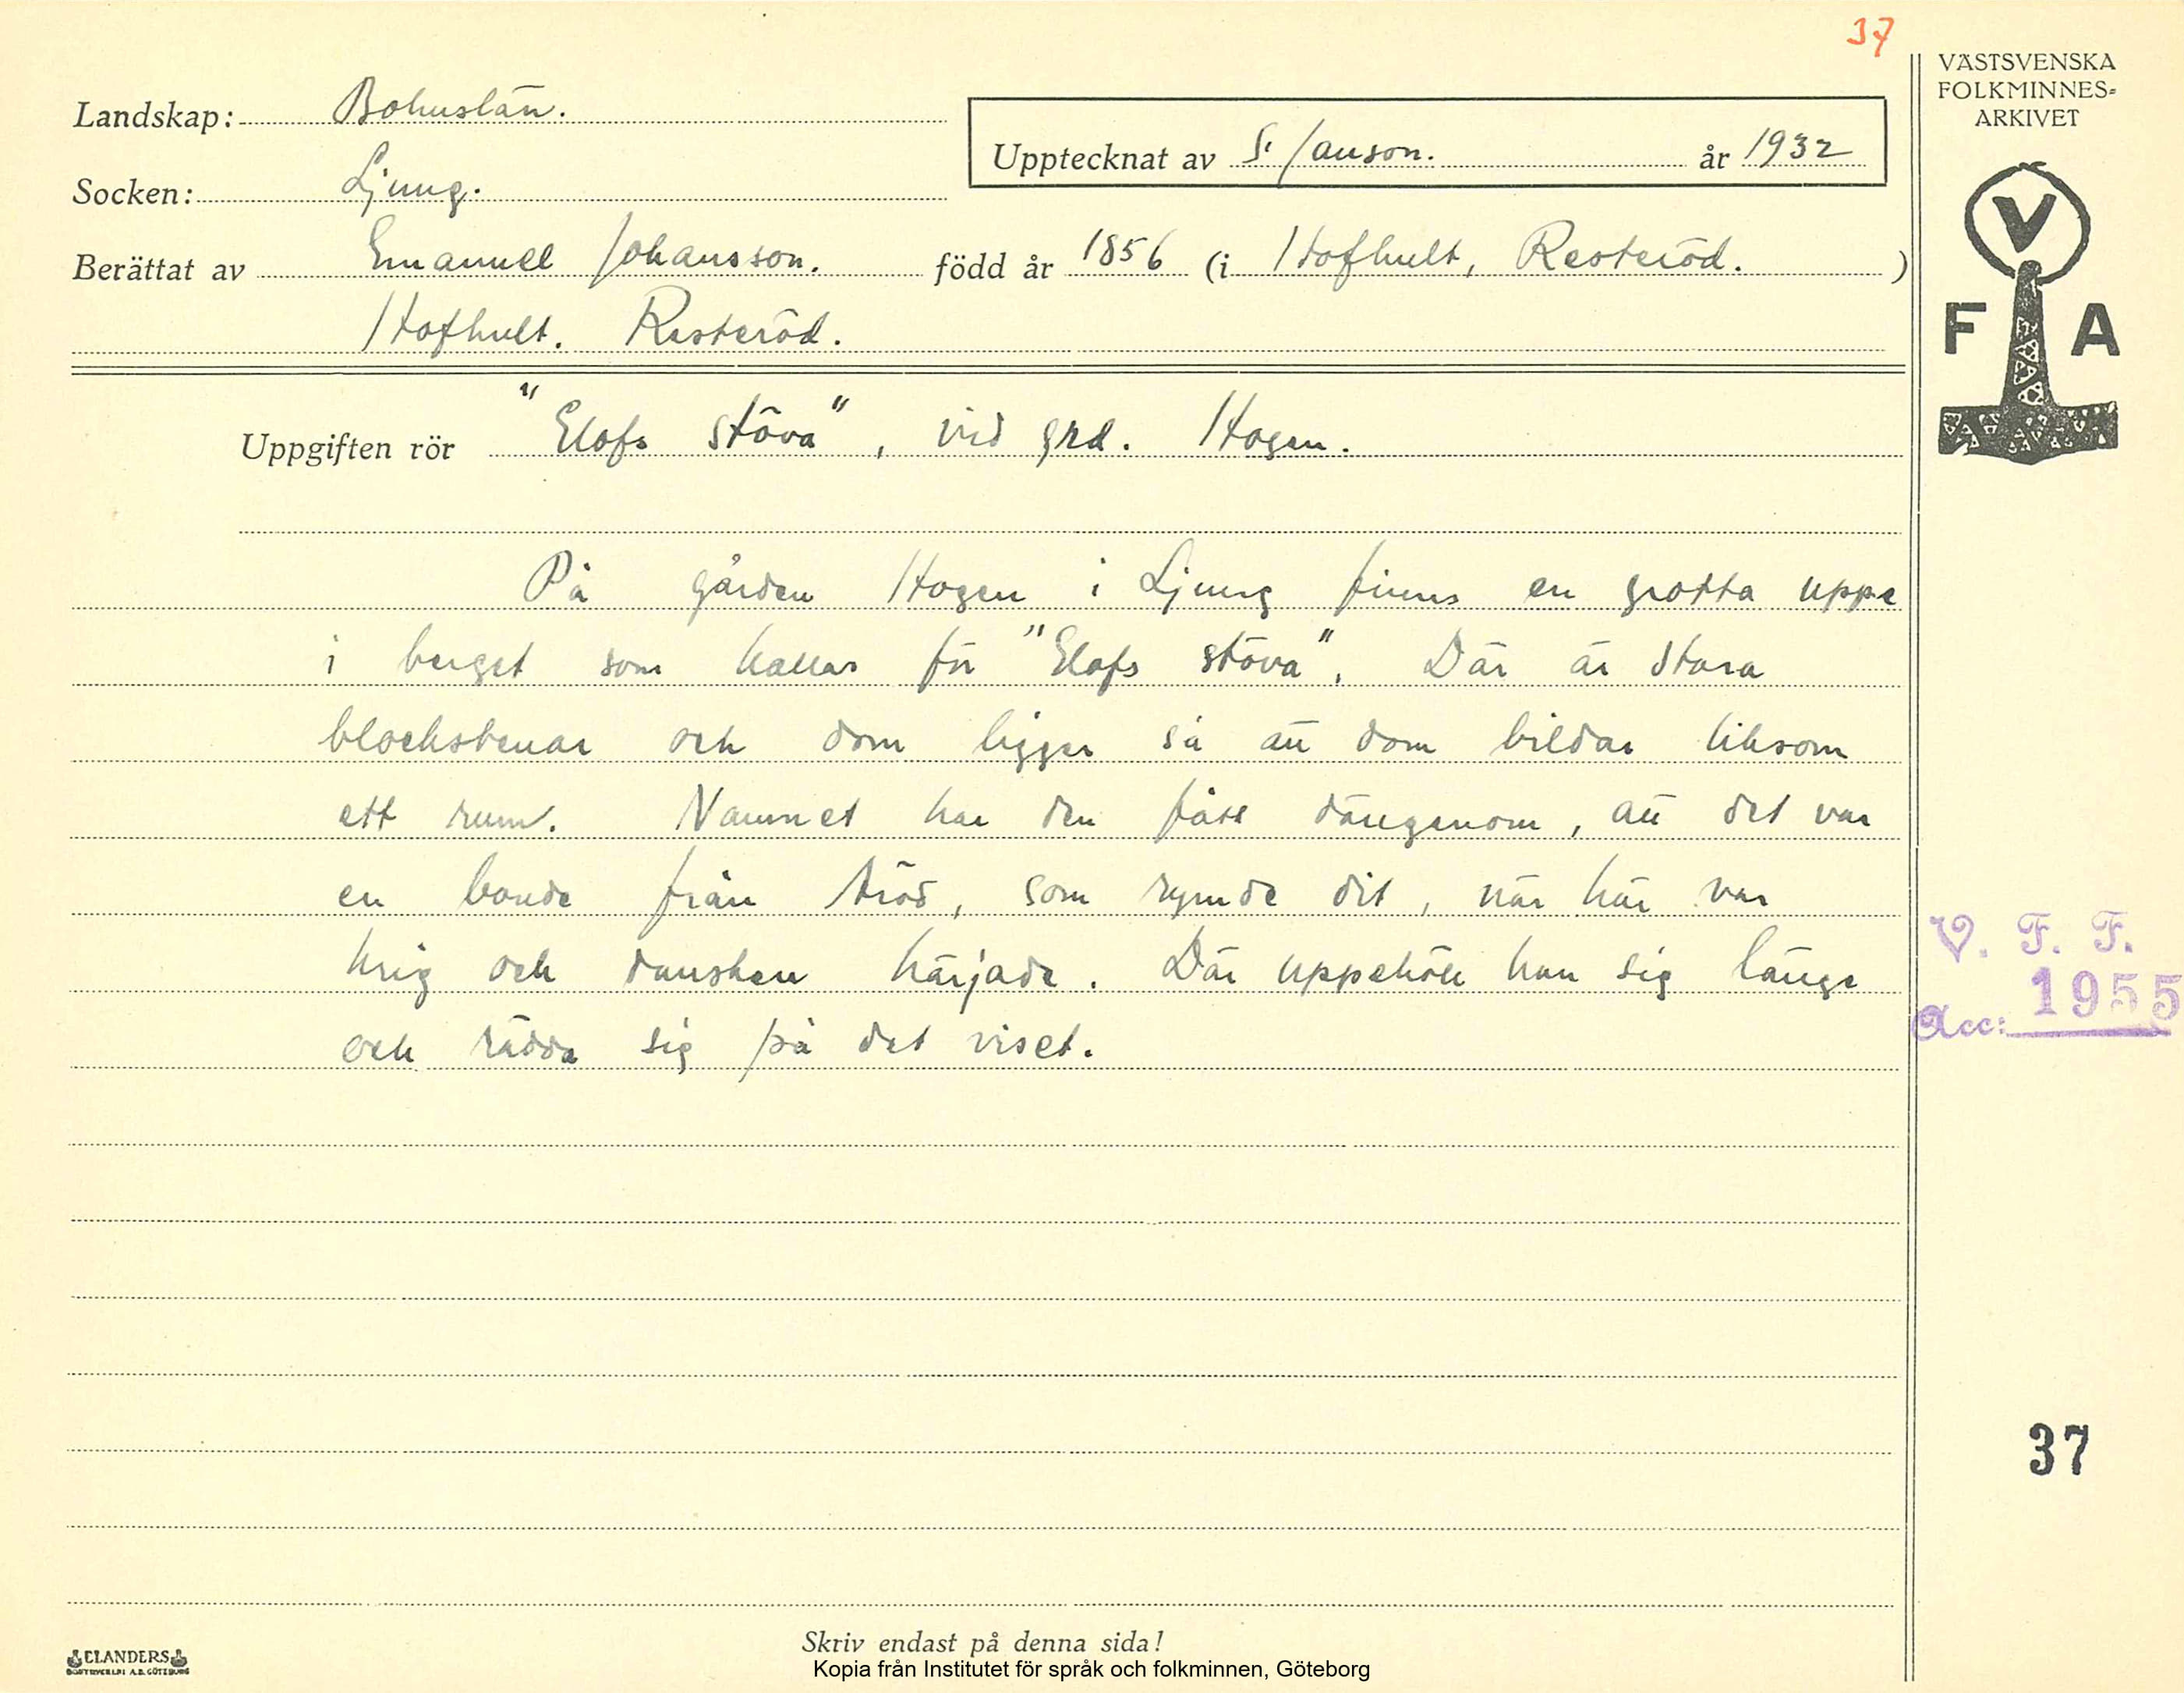 37
VÄSTSVENSKA
FOLKMINNES=
ARKIVET
Landskap: Bohuslän.
Upptecknat av S. Janson. år 1932
Socken: Ljung.
Berättat av Emanuel Johansson. född år 1856 (i Hofhult, Resteröd. )
Hofhult. Resteröd.
V
F A
Uppgiften rör "Elofs stöva", vid grd. Hogen.
På gården Hogen i Ljung finns en grotta uppe
i berget som kallas för "Elofs stöva". Där är stora
blockstenar och dom ligger så att dom bildar liksom
ett rum. Namnet har den fått därigenom, att det var
en bonde från Aröd, som rymde dit, när här var
krig och dansken härjade. Där uppehöll han sig länge
och rädda sig på det viset.
V. F. F.
1955
Acc:
37
Skriv endast på denna sida!
ELANDERS
BOKTRYCKERI A.B. GÖTEBORG
Kopia från Institutet för språk och folkminnen, Göteborg